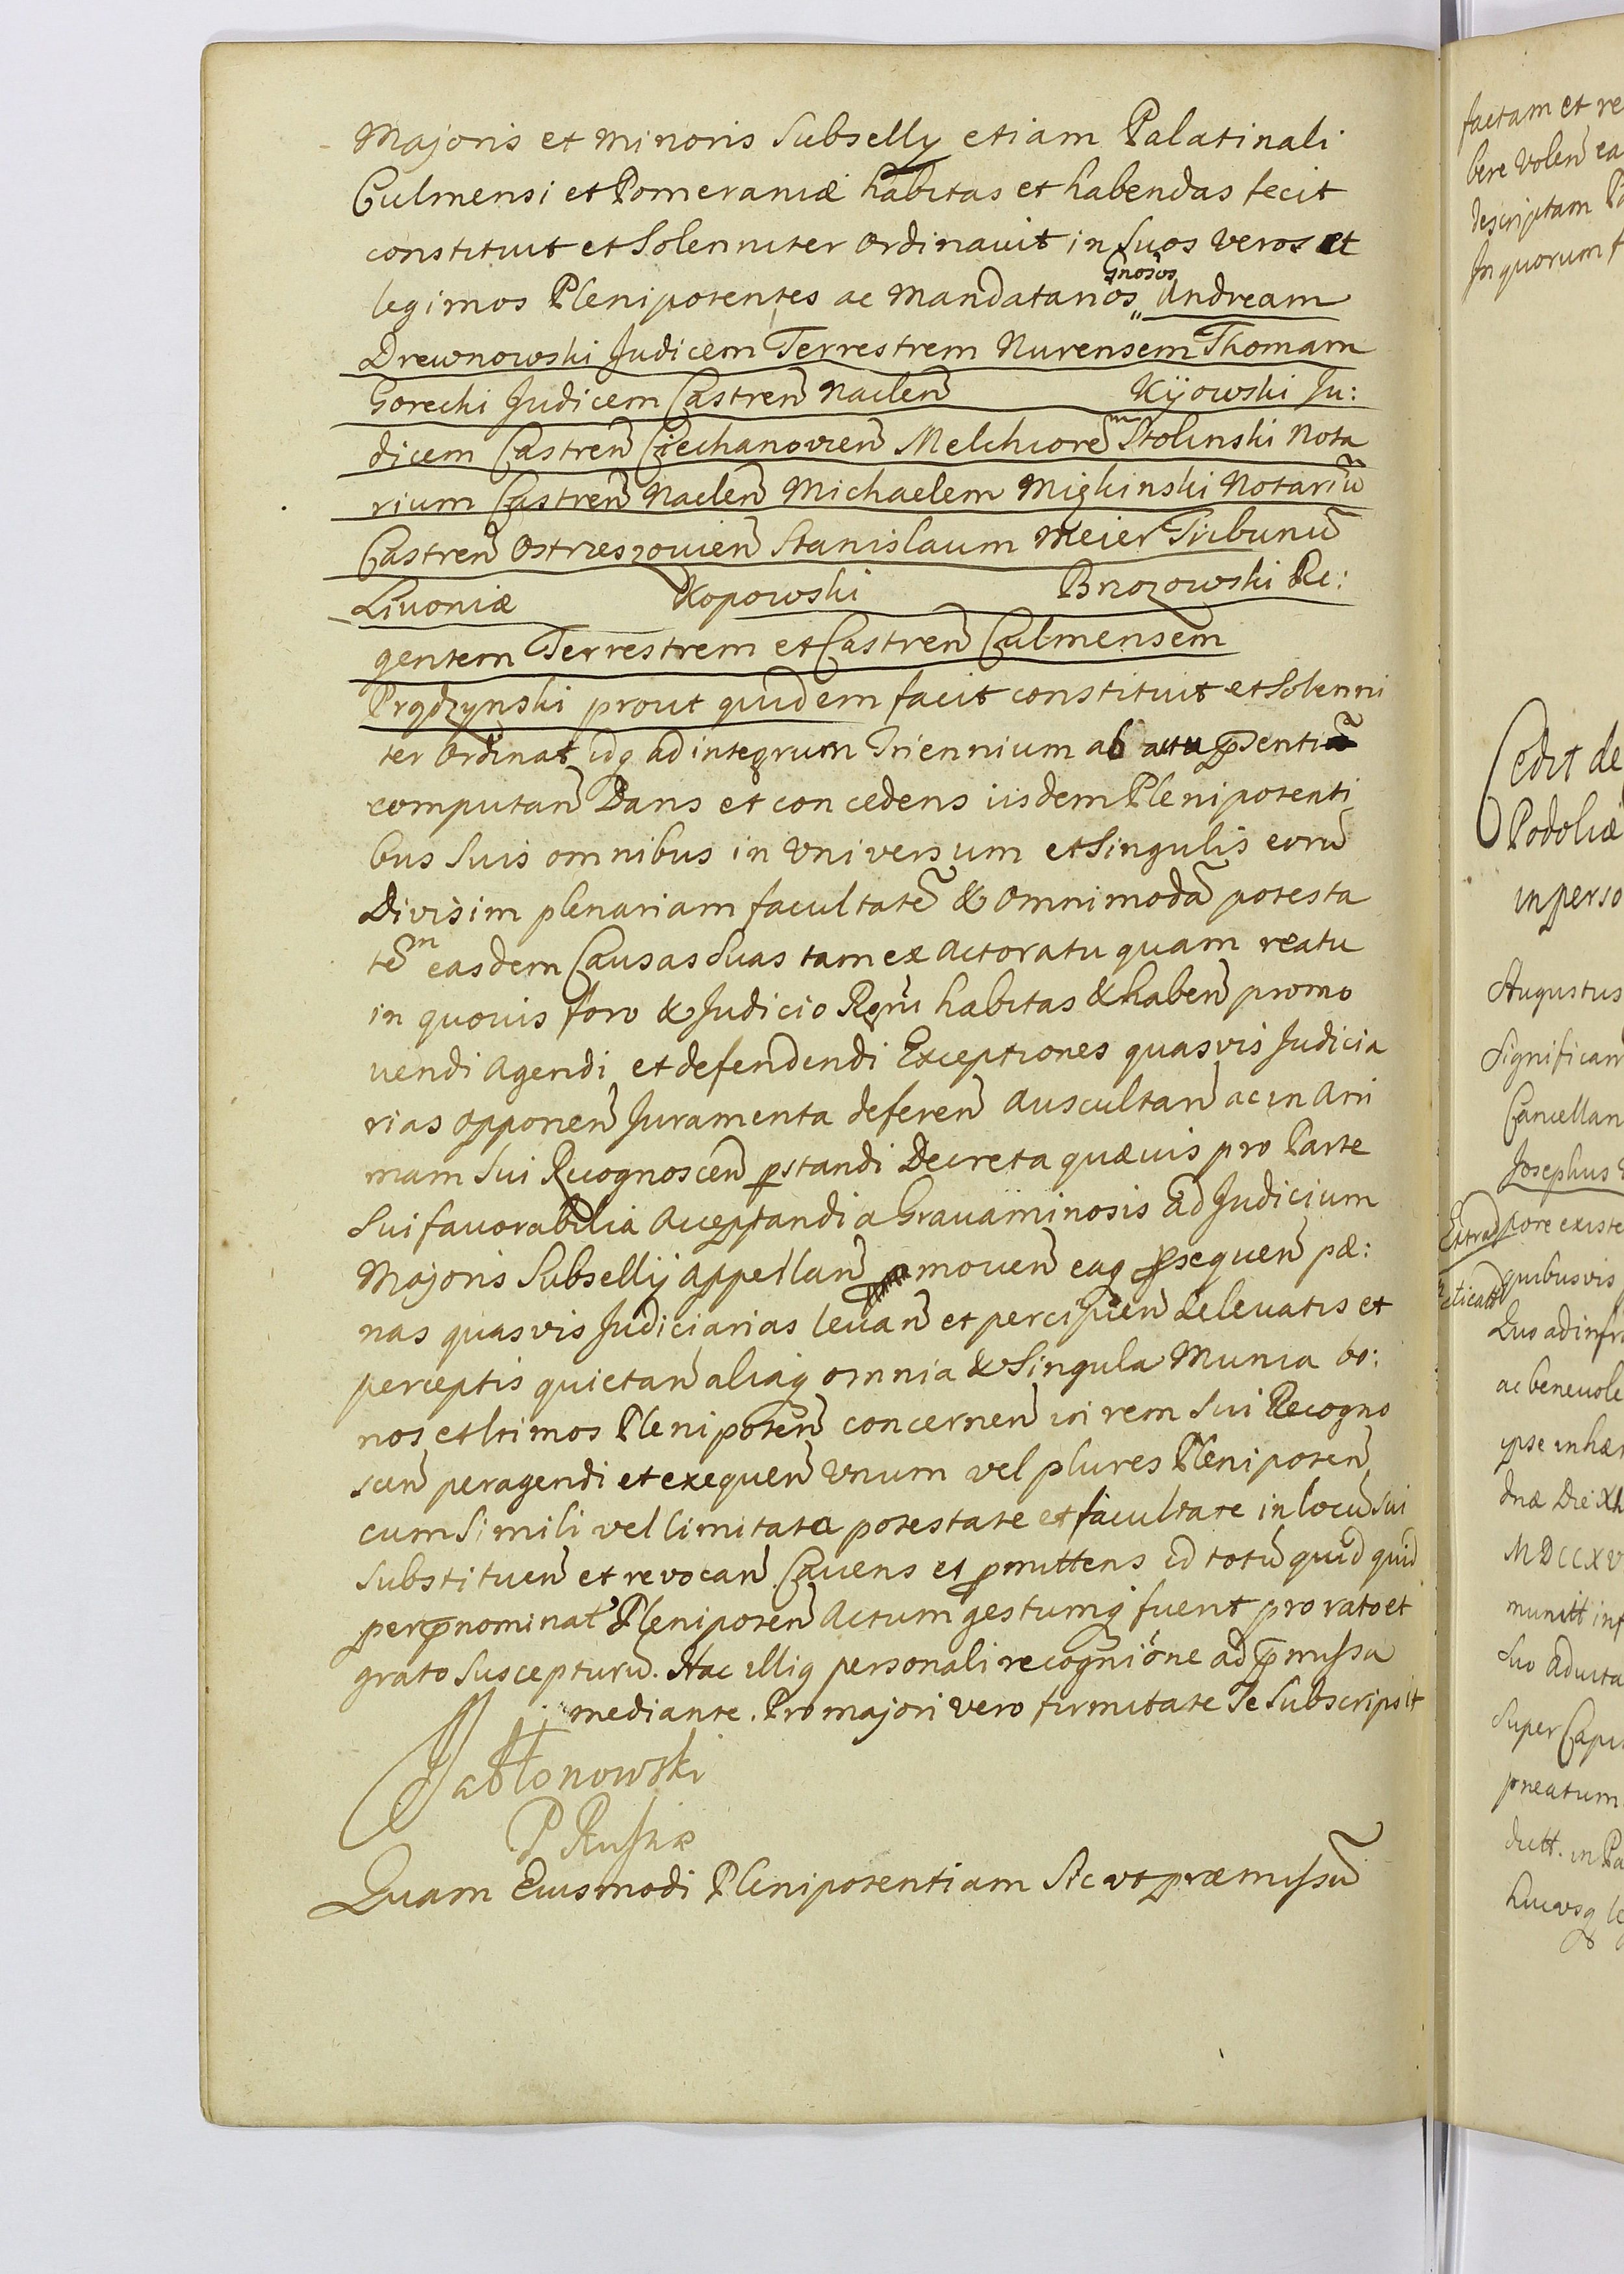 Majoris et minoris Subselly etiam Palatinali
Culmensi et Pomeraniæ habitas et habendas fecit
constituit et Solenniter Ordinauit in Suos Veros et
legimos Plenipotentes ac Mandatarios Gnosos Andream
Drewnowski Judicem Terrestrem Nurensem Thomam
Gorecki Judicem Castren̄ Naclen̄ Kijowski Ju:
dicem Castren̄ Ciechanovien̄ Melchiorem Stolinski Nota
rium Castren̄ Naclen̄ Michaelem Migkinski Notariū
Castren̄ Ostrzeszovien̄ Stanislaum Meier Tribunū
Livoniæ Kopowski Brzozowski Re:
gentem Terrestrem et Castren̄ Culmensem
Prądzynski prout quidem facit constituit et Solenni
ter Ordinat idq ad integrum Triennium ab actu p̄senti
computan̄ Dans et concedens iisdem Plenipotenti
bus Suis omnibus in Universum et Singulis eorū
Divisim plenariam facultatē & Omnimodā potesta
tēm easdem Causas Suas tam ex Actoratu quam reatu
in quovis foro & Judicio Regni habitas & haben̄ promo
vendi Agendi et defendendi Exceptiones quasvis Judicia
rias Opponen̄ Juramenta deferen̄ Auscultan̄ ac in Ani
mam Sui Recognoscen̄ p̄standi Decreta quævis pro Parte
Sui favorabilia Acceptandi a Gravaminosis ad Judicium
Majoris Subsellij Appellan̄ movene eaq prosequen̄ pæ:
nas quasvis Judiciarias levan̄ et percipien̄ de levatis et
perceptis quietan̄ aliaq omnia & Singula Munia bo:
nos et ltimos Plenipoten̄ concernen̄ in rem Sui Recogno
scen̄ peragendi et exequen̄ Unum vel plures Plenipoten̄
cum Simili vel limitata potestate et facultate in locū Sui
Substituen̄ et revocan̄ Cavens et promittens id totū quid quid
per p̄nominat' Plenipoten̄ Actum gestumq fuerit pro rato et
grato Suscepturū. Hac illiq personali recognióne ad p̄missa
mediante. Pro majori vero firmitate Se Subscripsit
Jabłonowski
P Russiæ
Quam Eiusmodi Plenipotentiam Sic ut præmissū
factam et re
bere Volen̄ ea
descriptam
In quorum f
Cedit de
Podoliæ
in perso
Augustus
Significan
Cancellari
Josephus
pore existe
quibusvis
Quo ad infra
ac benevole
ipse inhær
dnæ Die
MDCCXV
munitt inf
Suo aducta
Super Capit
pneatum
dutt. in Pa
hucusq le